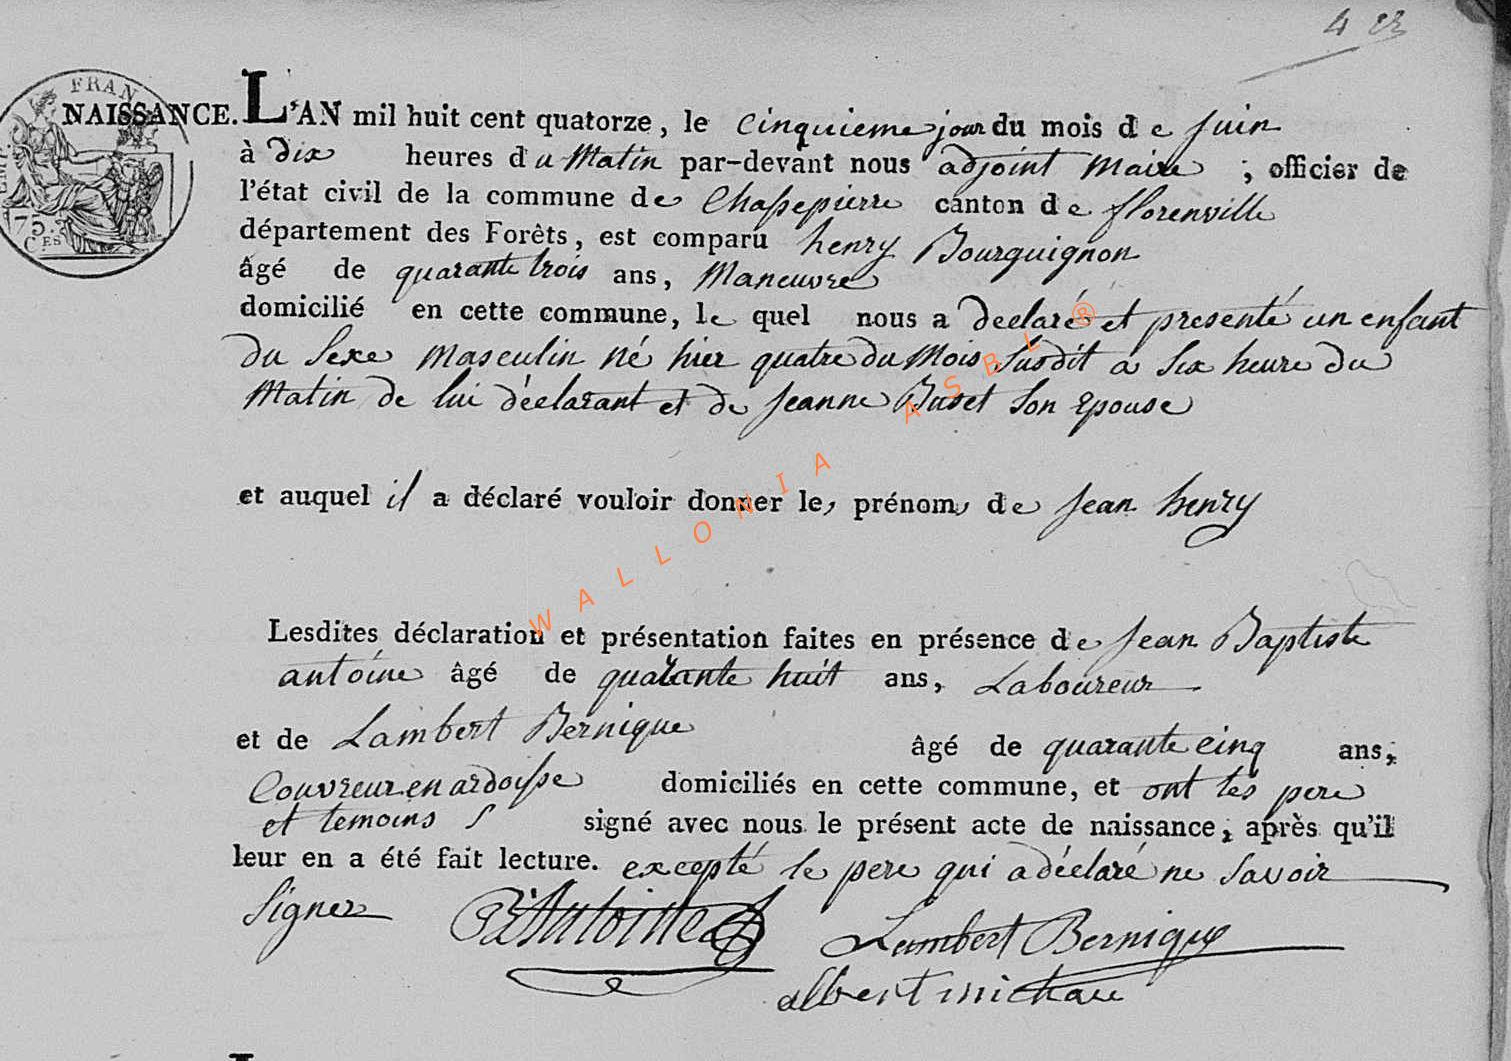 4 
FRAN
EMP.
75.
C.ES
NAISSANCE. L'AN mil huit cent quatorze, le cinquieme jour du mois de juin
à dix heures du Matin par-devant nous adjoint maire ; officier de
l'état civil de la commune de Chassepierre canton de florenville
département des Forêts, est comparu henry Bourguignon
âgé de quarante trois ans, Maneuvre
domicilié en cette commune, le quel nous a declaré et presenté un enfant
du Sexe Masculin né hier quatre du Mois Susdit a Six heure du
Matin de lui déclarant et de jeanne Buset Son Epouse
et auquel il a déclaré vouloir donner le, prénom, de jean henry
Lesdites déclaration et présentation faites en présence de jean Baptiste
antoine âgé de quarante huit ans, Laboureur
et de Lambert Bernique âgé de quarante cinq ans,
Couvreur en ardoisse domiciliés en cette commune, et ont les pere
et temoins signé avec nous le présent acte de naissance, après qu'il
leur en a été fait lecture. excepté le pere qui a déclaré ne Savoir
Signer Antoine Lambert Bernique
albert michau
WALLONIA ASBL ®